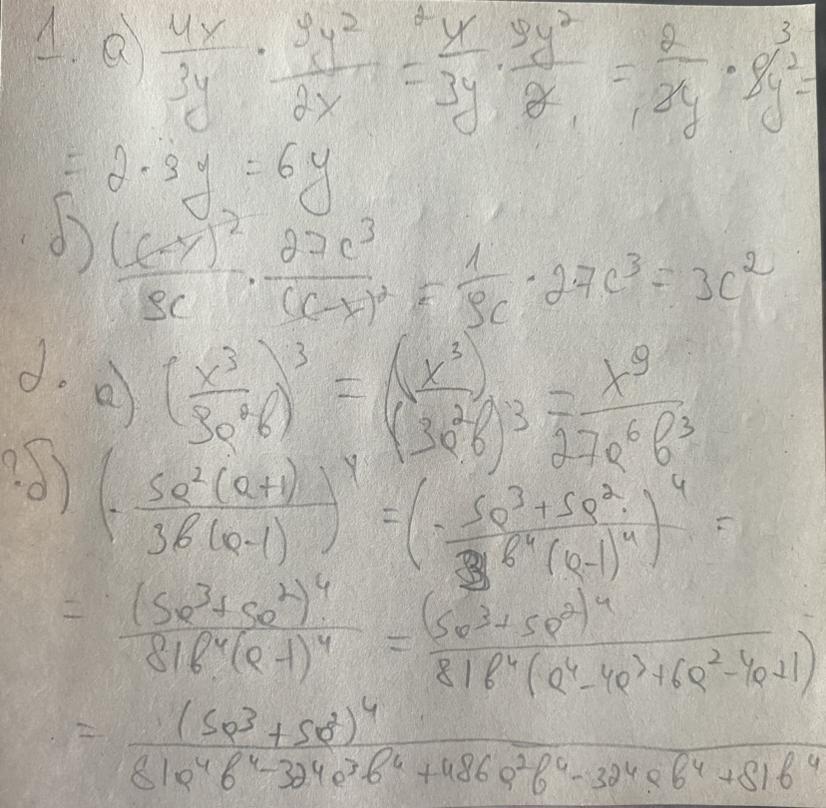 1. а) 4x/3y · 9y²/2x = ²4/3y · 9y²/2 = 2/3y · 9y² ³ =
= 2 · 3y = 6y
б) (c-x)²/9c · 27c³/(c-x)² = 1/9c · 27c³ = 3c²
2. а) (x³/3a²b)³ = (x³)³/(3a²b)³ = x⁹/27a⁶b³
?б) (- 5a²(a+1)/3b(a-1))⁴ = (- 5a³+5a²/b⁴(a-1)⁴)⁴ =
= (5a³+5a²)⁴/81b⁴(a-1)⁴ = (5a³+5a²)⁴/81b⁴(a⁴-4a³+6a²-4a+1)
= (5a³+5a²)⁴/81a⁴b⁴-324a³b⁴+486a²b⁴-324ab⁴+81b⁴